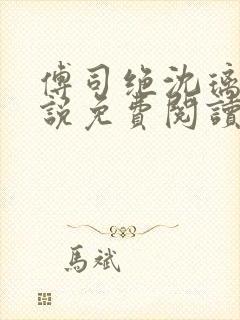 傅司绝沈璃
說免費閱讀
馬斌